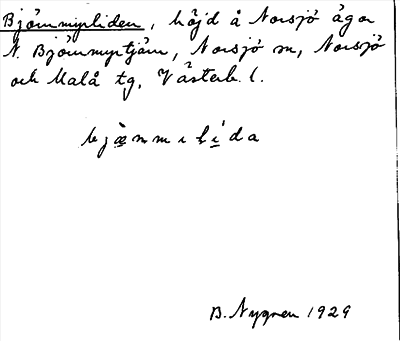 Björnmyrliden, höjd å Norsjö ägor
N. Björnmyrtjärn, Norsjö sn, Norsjö
och Malå tg, Västerb. l.
bjæ̀nmıḷı̣́da
B. Nygren 1929